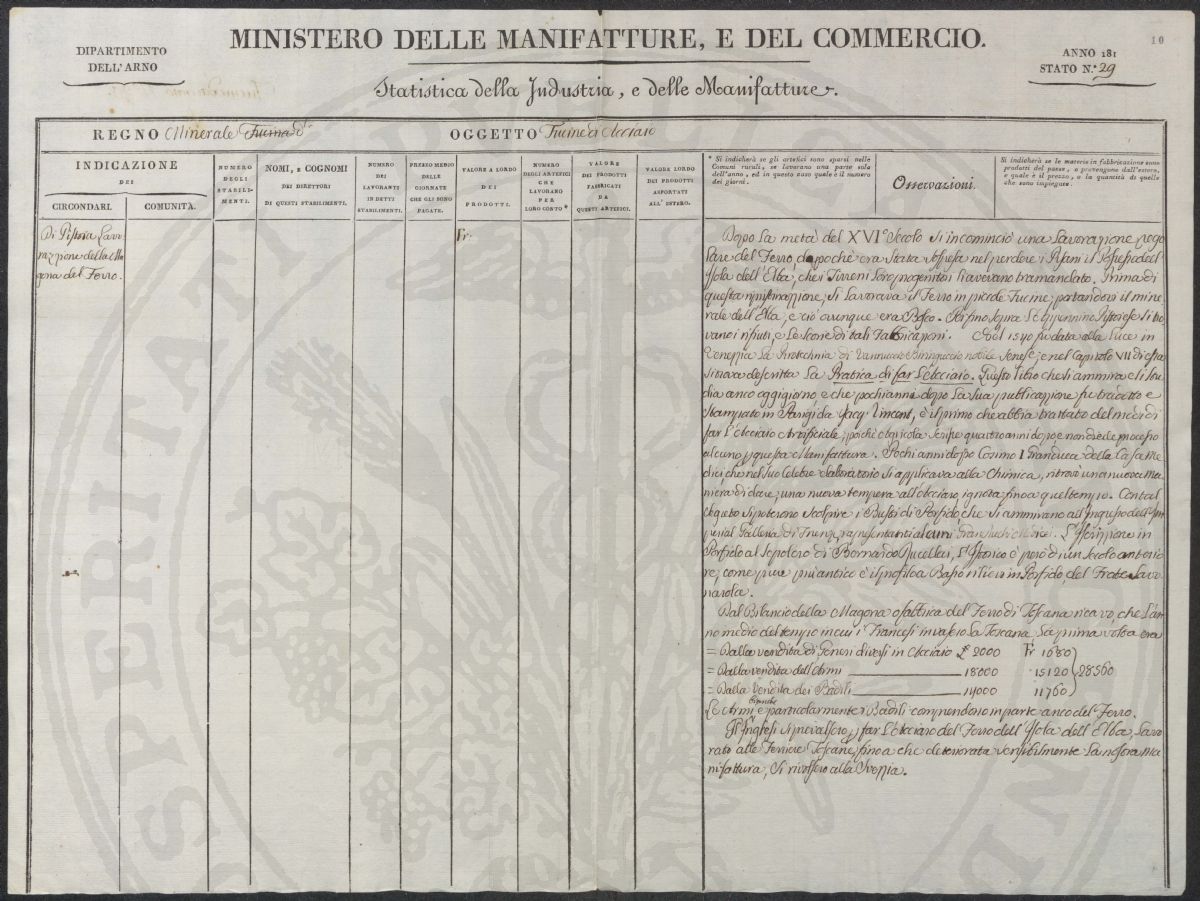 10
MINISTERO DELLE MANIFATTURE, E DEL COMMERCIO.
DIPARTIMENTO
DELL'ARNO
ANNO 181
STATO N.º 29
Statistica della Industria, e delle Manifatture.
REGNO Minerale Fucina di
OGGETTO Fucine di Acciaio
INDICAZIONE
DEI
CIRCONDARI.
COMUNITÀ.
NUMERO
DEGLI
STABILI-
MENTI.
NOMI, E COGNOMI
DEI DIRETTORI
DI QUESTI STABILIMENTI.
NUMERO
DEI
LAVORANTI
IN DETTI
STABILIMENTI.
PREZZO MEDIO
DELLE
GIORNATE
CHE GLI SONO
PAGATE.
VALORE A LORDO
DEI
PRODOTTI.
NUMERO
DEGLI ARTEFICI
CHE
LAVORANO
PER
LORO CONTO *
VALORE
DEI PRODOTTI
FABBRICATI
DA
QUESTI ARTEFICI.
VALORE LORDO
DEI PRODOTTI
ASPORTATI
ALL' ESTERO.
* Si indicherà se gli artefici sono sparsi nelle
Comuni rurali, se lavorano una parte sola
dell'anno, ed in questo caso quale è il numero
dei giorni.
Osservazioni.
Si indicherà se le materie in fabbricazione sono
prodotti del paese, o provengono dall'estero,
e quale è il prezzo, e la quantità di quelle
che sono impiegate.
Di Pistoia Lavo
razione della Ma
gona del Ferro.
Fr.
Dopo la metà del XVIº Secolo si incominciò una Lavorazione rego
lare del Ferro, dopochè era stata sospesa nel perdere i Pisani il Possesso dell'
Isola dell'Elba, che i Tirreni Loro progenitori li avevano tramandato. Prima di
questa, si Lavorava il Ferro in piccole Fucine, portandovi il mine
rale dell'Elba, e ciò ovunque era Bosco. Perfino sopra l'Appennino Pistoiese si tro
vano i rifiuti, e le scorie di tali Fabbricazioni. Nel 1540 fu data alla Luce in
Venezia La Pirotechnia di Vannuccio Biringuccio nobile Senese; e nel Capitolo VII di essa
si trova descritta La Pratica di far L'Acciaio. Questo libro che si ammira e si stu
dia anco oggigiorno, e che pochi anni dopo La sua pubblicazione fu tradotto e
stampato in Parigi da Jacq. Vincent, è il primo che abbia trattato del modo di
far L'Acciaio Artificiale; poichè Agricola scrisse quattro anni dopo e non diede processo
alcuno p questa Manifattura. Pochi anni dopo Cosimo I Granduca della Casa Me
dici, che nel suo Celebre elaboratorio si applicava alla Chimica, ritrovò una nuova ma
niera di dare, una nuova tempera all'Acciaro, ignota fino a quel tempo. Con tal
segreto si poterono Scolpire i Busti di Porfido, che si ammirano all'Ingresso dell'Im
perial Galleria di Firenze, rappresentanti alcuni Gran Duchi Medicei. L'Iscrizione in
Porfido al Sepolcro di Bernardo Rucellai, L'Istorico è però di un secolo anterio
re, come pure più antico è il profilo a Basso rilievo in Porfido, del Frate Savo
narola.
Dal Bilancio della Magona o fabbrica del Ferro di Toscana ricavo, che L'an
no medio del tempo in cui i Francesi invasero La Toscana La prima volta era
= Dalla vendita di Generi diversi in Acciaio £ 2000 Fr 1680
= Dalla vendita dell'Armi 18000 15120 28560
= Dalla vendita dei Badili 14000 11760
Le Armi bianche e particolarmente i Badili comprendono in parte anco del Ferro.
Gl'Inglesi si prevalsero, p far L'Acciaro del Ferro dell'Isola dell'Elba, Lavo
rato alle Ferriere Toscane, fino a che deteriorata sensibilmente La nostra ma
nifattura, si rivolsero alla Svezia.